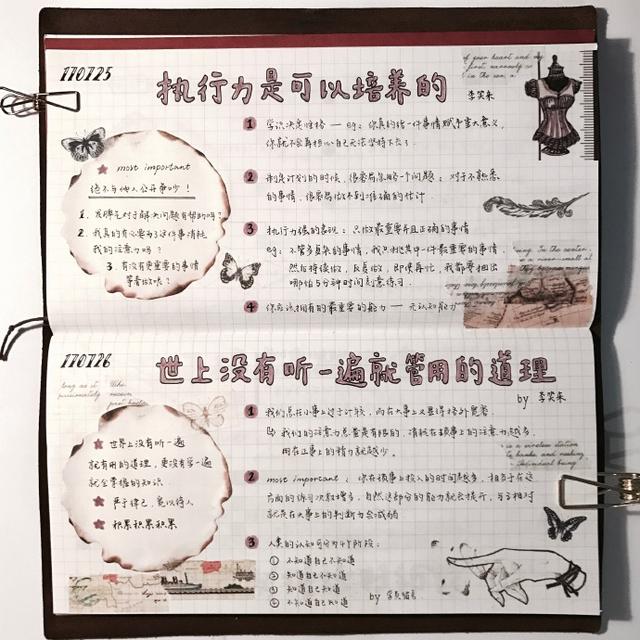 170725
执行力是可以培养的
李笑来
most important
绝不与他人公开争吵!
1. 发脾气对于解决问题有帮助吗?
2. 我真的有必要为了这件事情耗
我的注意力吗?
3. 有没有更重要的事情
等着做呢?
1 学识决定性格 — eg: 你真的给一件事情赋予重大意义,
你就不会再担心自己无法坚持下去了.
2 制定计划的时候, 很容易忽略一个问题: 对于不熟悉
的事情, 很容易做不到准确的估计
3 执行力强的表现: 只做最重要并且正确的事情
eg: 不管多复杂的事情, 我只挑其中一件最重要的事情,
然后持续做, 反复做, 即使再忙, 我都要抽出
哪怕5分钟时间刻意练习.
4 你应该拥有的最重要的能力 — 元认知能力
170726
世上没有听一遍就管用的道理
by 李笑来
世界上没有听一遍
就有用的道理, 更没有学一遍
就会掌握的知识.
严于律己, 宽以待人
积累积累积累
1 我们总在小事上过于计较, 而在大事上又显得格外宽容.
我们的注意力总量是有限的, 消耗在琐事上的注意力越多,
用在正事上的精力就越少.
2 most important: 你在琐事上投入的时间越多, 相当于在这
方面的练习次数增多, 自然这部分的能力就会提升, 与之相对
就是在大事上的判断力会减弱
3 人类的认知可分为4个阶段:
① 不知道自己不知道
② 知道自己不知道
③ 知道自己知道
④ 不知道自己知道
by